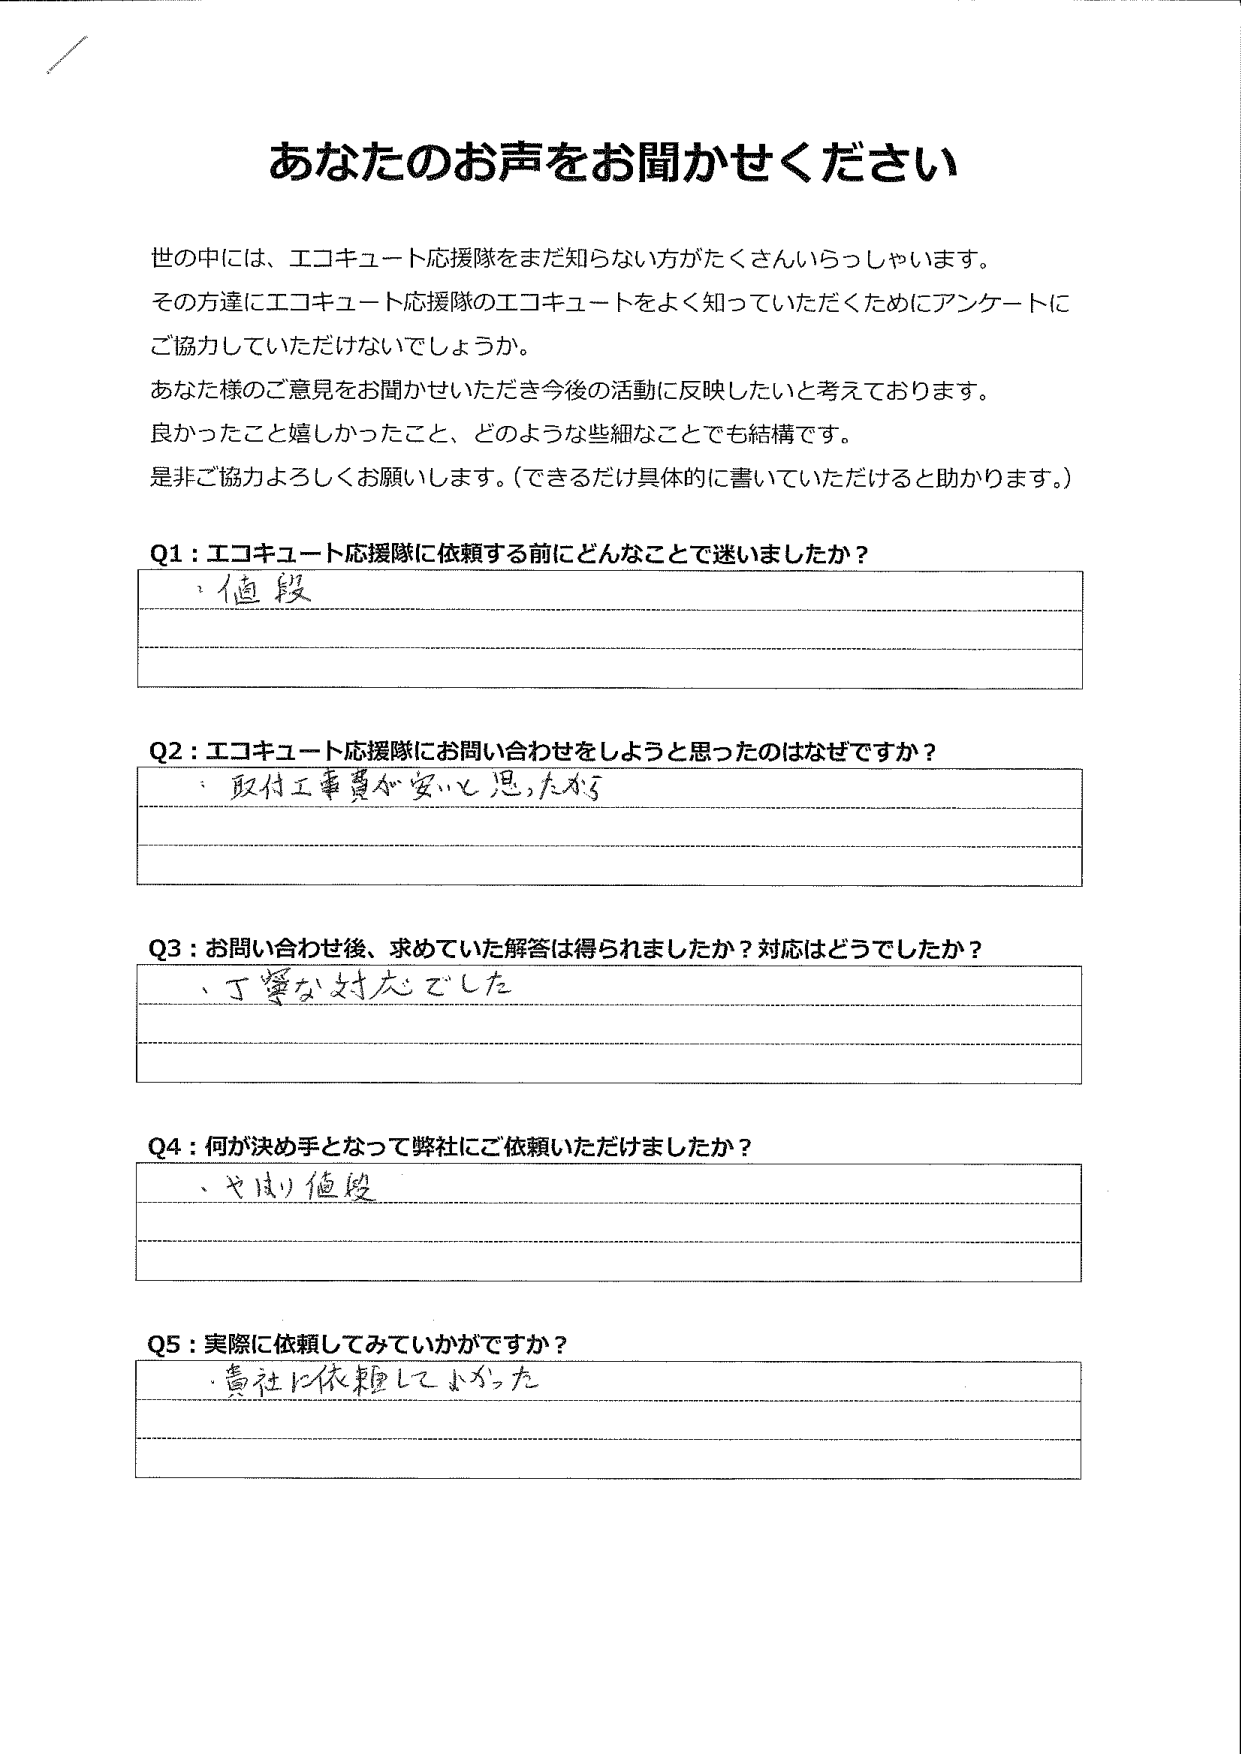 あなたのお声をお聞かせください
世の中には、エコキュート応援隊をまだ知らない方がたくさんいらっしゃいます。
その方達にエコキュート応援隊のエコキュートをよく知っていただくためにアンケートに
ご協力していただけないでしょうか。
あなた様のご意見をお聞かせいただき今後の活動に反映したいと考えております。
良かったこと嬉しかったこと、どのような些細なことでも結構です。
是非ご協力よろしくお願いします。（できるだけ具体的に書いていただけると助かります。）
Q1：エコキュート応援隊に依頼する前にどんなことで迷いましたか？
・値段
Q2：エコキュート応援隊にお問い合わせをしようと思ったのはなぜですか？
・取付工事費が安いと思ったから
Q3：お問い合わせ後、求めていた解答は得られましたか？対応はどうでしたか？
、丁寧な対応でした
Q4：何が決め手となって弊社にご依頼いただけましたか？
、やはり値段
Q5：実際に依頼してみていかがですか？
・貴社に依頼してよかった